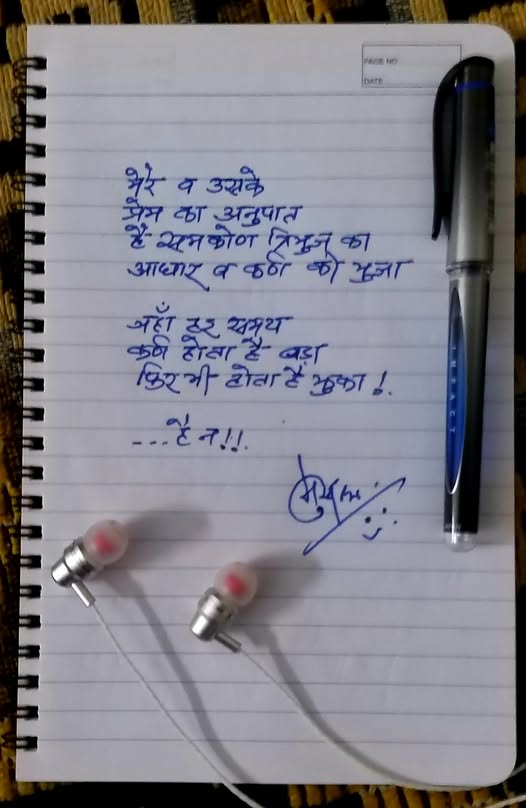 PAGE NO
DATE
मेरे व उसके
प्रेम का अनुपात
है समकोण त्रिभुज का
आधार व कर्ण की भुजा
जहाँ हर समय
कर्ण होता है बड़ा
फिर भी होता है झुका!
...है न!!
IMPACT